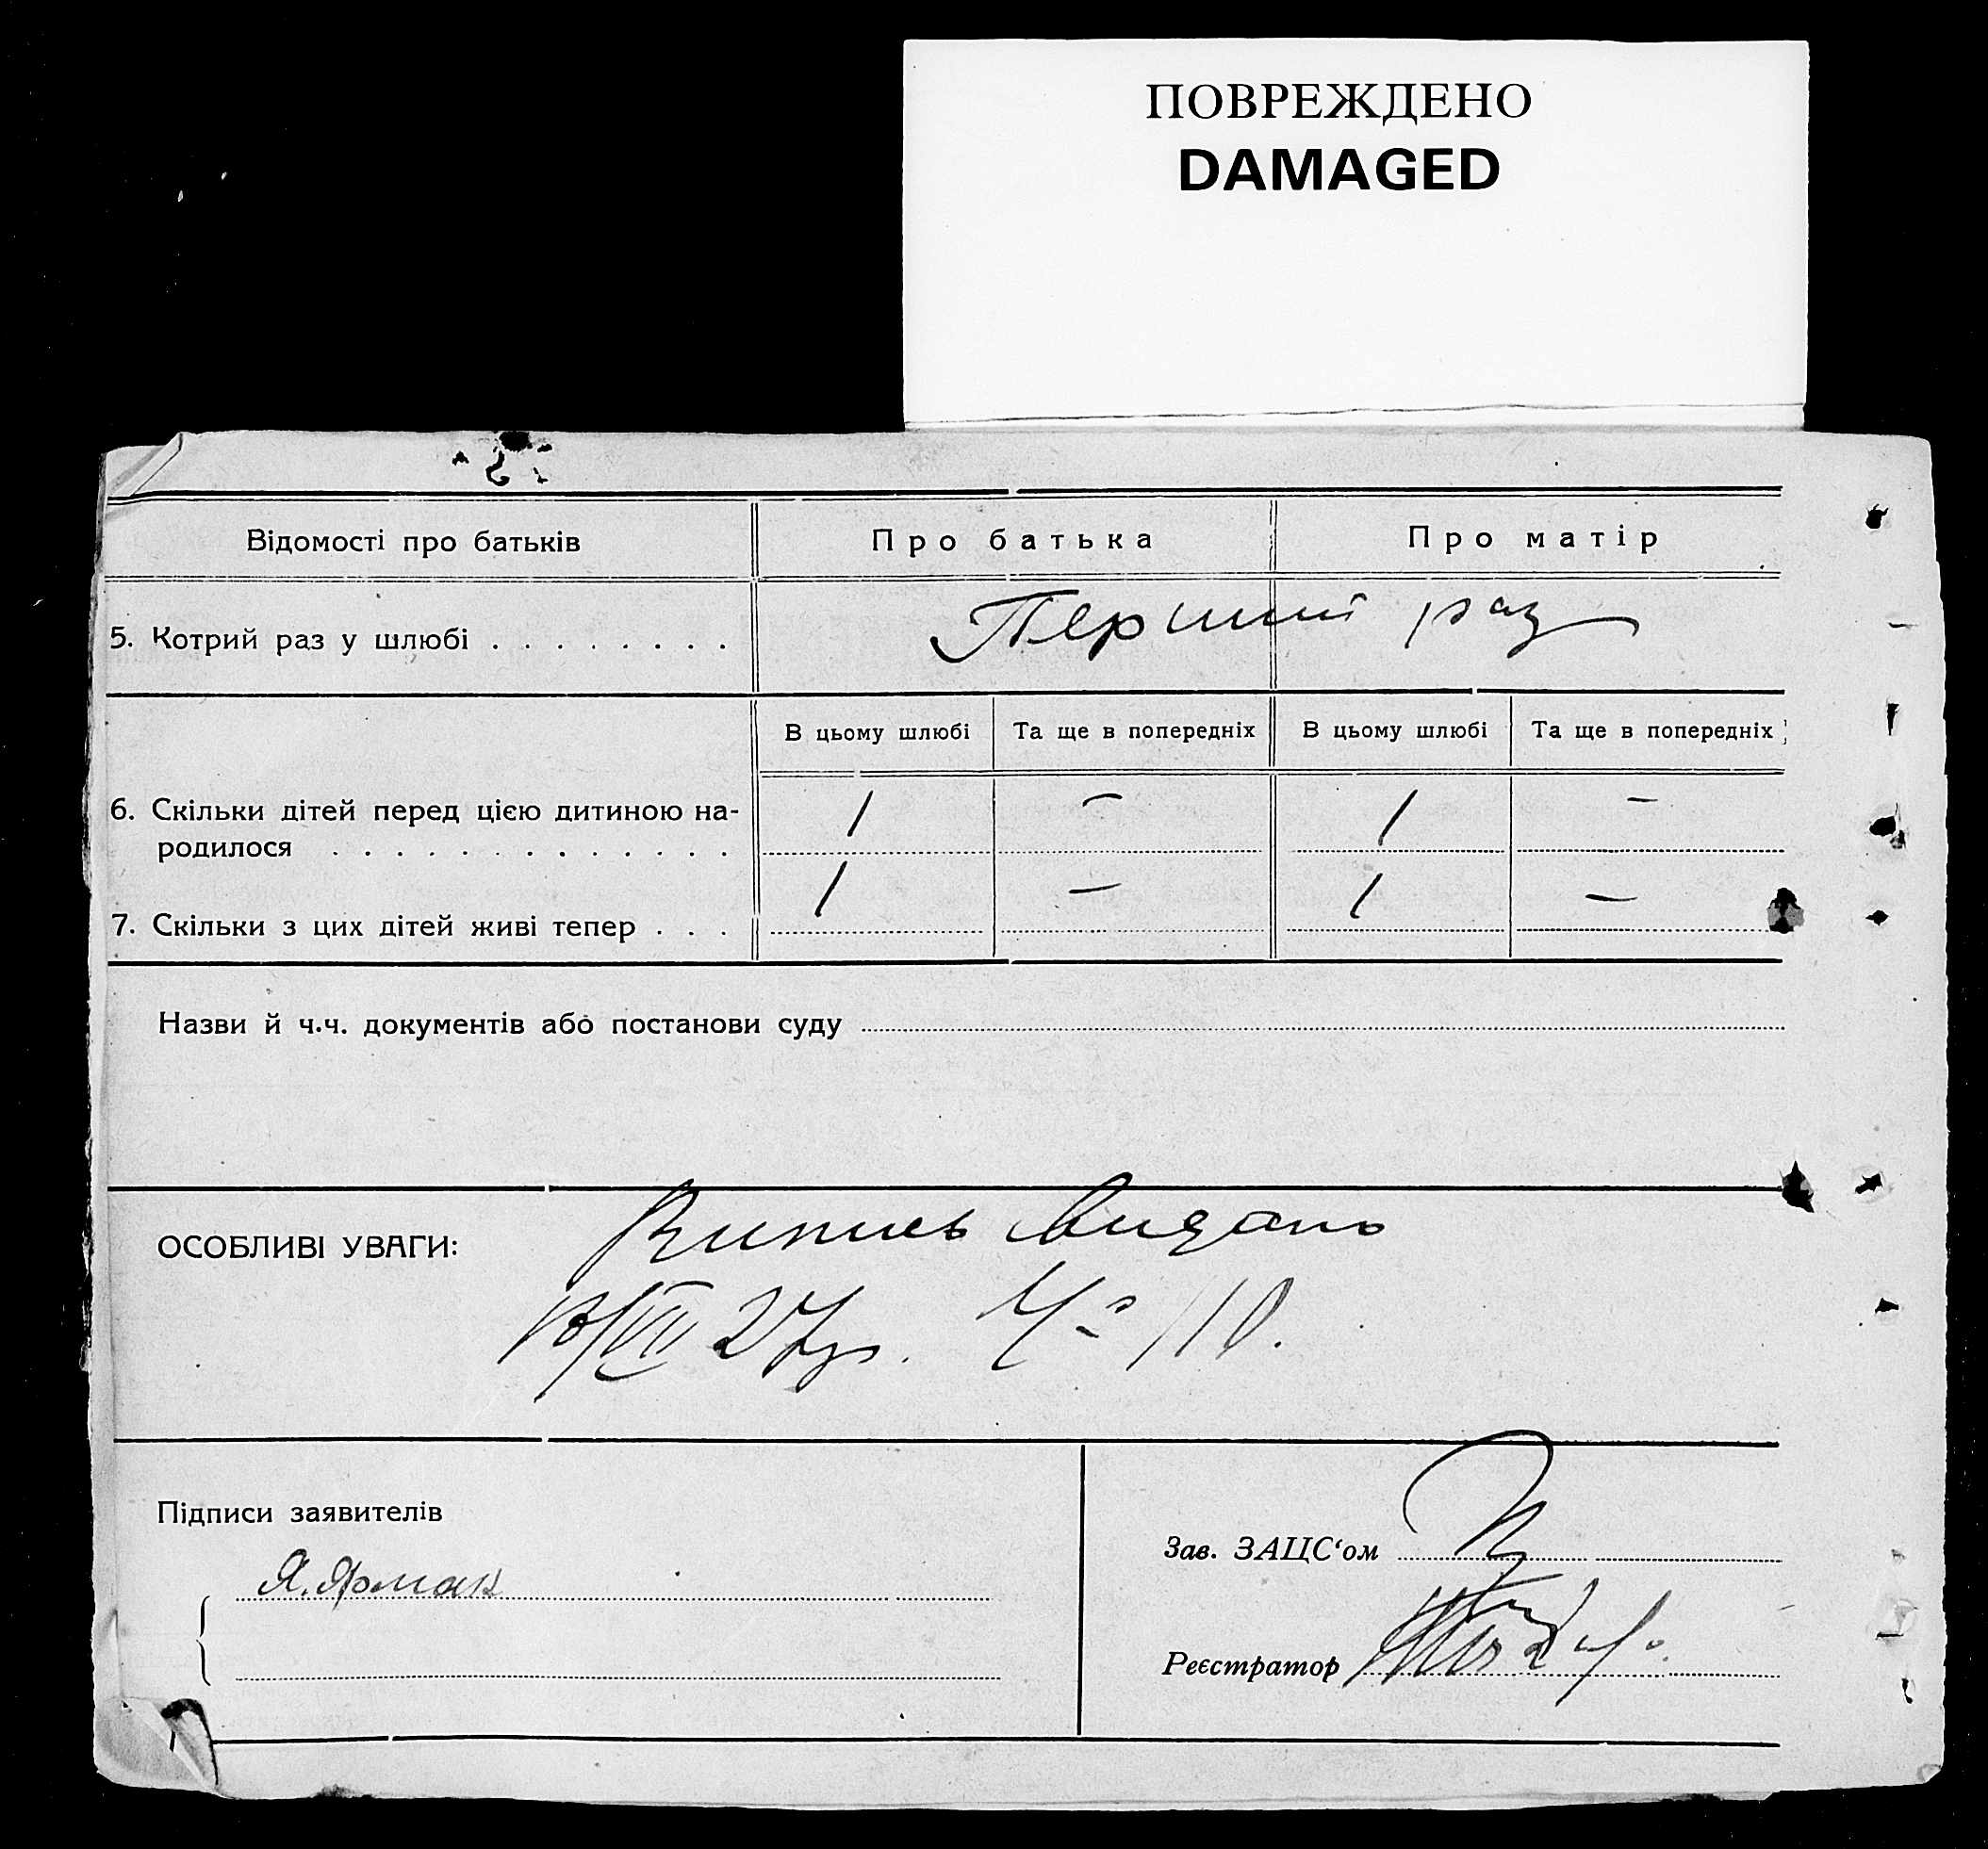 ПОВРЕЖДЕНО
DAMAGED
Відомості про батьків
Про батька
Про матір
5. Котрий раз у шлюбі . . . . . . . .
Перший раз
В цьому шлюбі
Та ще в попередніх
В цьому шлюбі
Та ще в попередніх
6. Скільки дітей перед цією дитиною на-
родилося . . . . . . . . . . . . .
1 – 1 –
7. Скільки з цих дітей живі тепер . . .
1 – 1 –
Назви й ч.ч. документів або постанови суду
ОСОБЛИВІ УВАГИ:
Випись видано
VII 27р. Ч 110.
Підписи заявителів
Я. Ярмак
Зав. ЗАЦС‘ом
Реєстратор